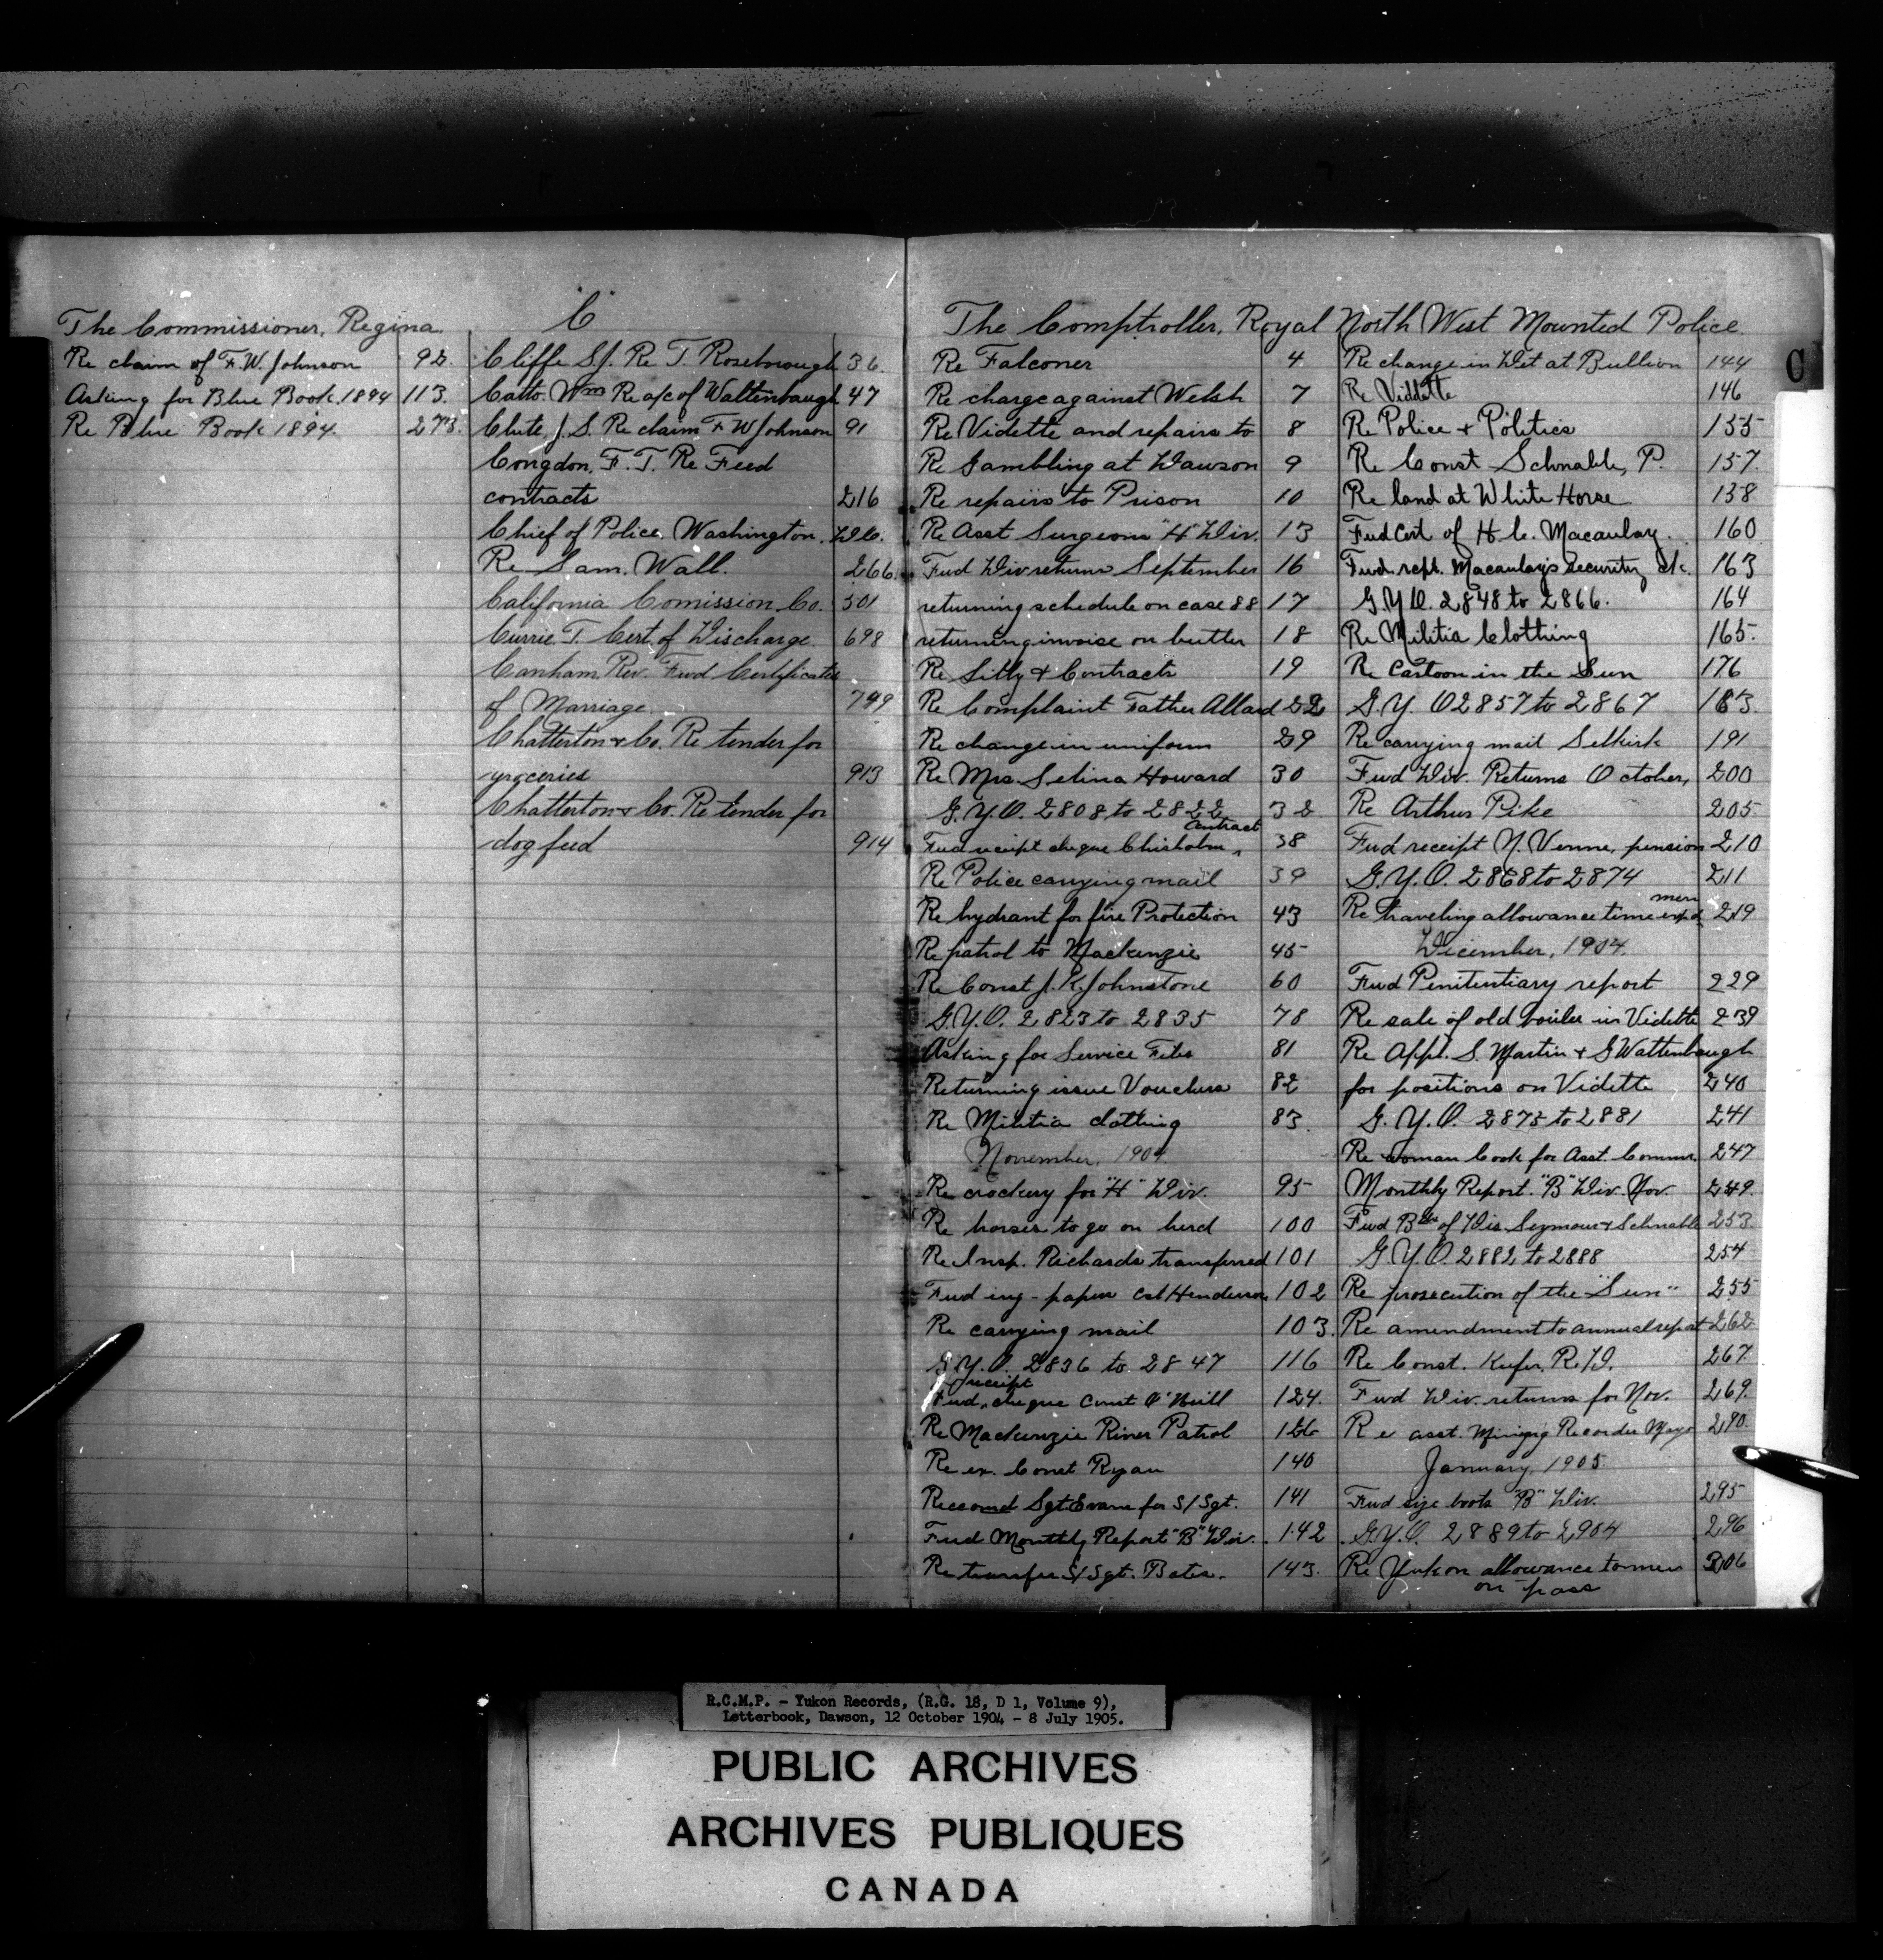 The Commissioner, Regina.
Re claim of F. W. Johnson 92.
Asking for Blue Book. 1894 113.
Re Blue Book 1894. 273.
"C"
Cliffe S.J. Re T. Rosebrough 36.
Catto. Wm Re a/c of Waltenbaugh 47
Clute, J. S. Re claim F W Johnson 91
Congdon, F. T. Re Feed
contracts 216
Chief of Police, Washington. D.C.
Re Sam. Wall. 266.
California Comission Co. 501
Currie. T. Cert. of Discharge 698
Canham, Rev. Fwd Certificates
of Marriage. 799
Chatterton & Co. Re tender for
groceries 913
Chatterton & Co. Re tender for
dog feed 914
The Comptroller, Royal North West Mounted Police
Re Falconer 4
Re charge against Welsh 7
Re Vidette and repairs to 8
Re Gambling at Dawson 9
Re repairs to Prison 10
Re Asst Surgeons "H" Div. 13
Fwd Div returns September 16
returning schedule on case 88 17
returning invoise on butter 18
Re Silly & Contracts 19
Re Complaint Father Allard 22
Re change in uniform 29
Re Mrs. Selina Howard 30
G.Y.O. 2808 to 2822 32
Fwd receipt cheque Chisholm contract 38
Re Police carrying mail 39
Re hydrant for fire Protection 43
Re patrol to Mackenzie 45
Re Const J. K. Johnstone 60
G.Y.O. 2823 to 2835 78
Asking for Service Files 81
Returning issue Vouchers 82
Re Militia clothing 83
November, 1904
Re crockery for "H" Div. 95
Re horses to go on herd 100
Re Insp. Richards transferred 101
Fwd eng - papers Cst Henderson 102
Re carrying mail 103.
G.Y.O. 2836 to 2847 116
Fwd receipt cheque Const O'Neill 124.
Re Mackenzie River Patrol
Re ex. Const Ryan 140
Recomd Sgt Evans for S/Sgt. 141
Fwd Monthly Report "B" Div. 142
Re transfer S/Sgt. Bates. 143.
C
Re change in Det at Bullion 144
Re Viddette 146
Re Police & Politics 155
Re Const Schnable, P. 157.
Re land at White Horse 158
Fwd Cert of H. C. Macaulay. 160
Fwd. rcpt. Macaulay's Security ck. 163
G.Y.O. 2848 to 2866. 164
Re Militia Clothing 165.
Re Cartoon in the Sun 176
G.Y.O 2857 to 2867 183.
Re carrying mail Selkirk 191
Fwd Div. Returns October, 200
Re Arthur Pike 205.
Fwd receipt N. Venne, pension 210
G.Y.O. 2868 to 2874 211
Re traveling allowance time expd men 219
December, 1904.
Fwd Penitentiary report 229
Re sale of old boiler in Vidette 239
Re Appl. S. Martin & G Wattenbaugh
for positions on Vidette 240
G.Y.O. 2875 to 2881 241
Re woman Cook for Asst. Commr. 247
Monthly Report. "B" Div. Nov. 249.
Fwd Bds of Dis Seymour & Schnable 253.
G.Y.O. 2882 to 2888 254
Re prosecution of the "Sun" 255
Re amendment to annual report 262
Re Const. Keefer, R.D. 267.
Fwd Div. returns for Nov. 269.
Re asst. Mining Recorder Mayo 290.
January, 1905.
Fwd size boots "B" Div. 295
G.Y.O. 2889 to 2904 296
Re Yukon allowance to men 306
on pass
R.C.M.P. - Yukon Records, (R.G. 18, D 1, Volume 9),
Letterbook, Dawson, 12 October 1904 - 8 July 1905.
PUBLIC ARCHIVES
ARCHIVES PUBLIQUES
CANADA